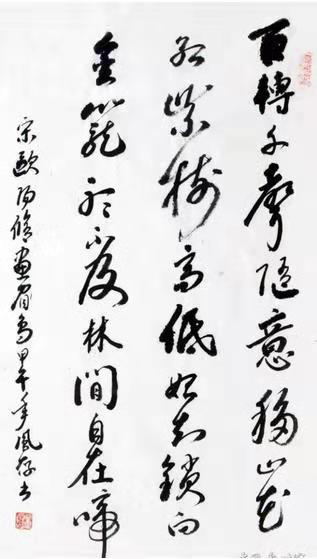 百轉千聲隨意移山花
紅紫樹高低始知鎖向
金籠聽不及林間自在啼
宋歐陽修畫眉鳥甲午年風書